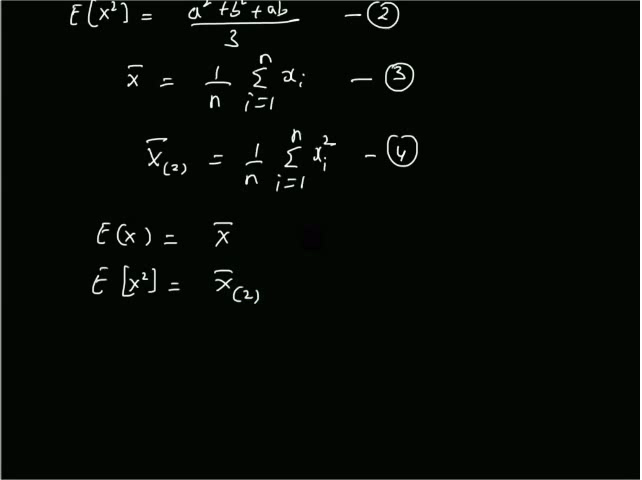 E[x²] = a² + b² + ab / 3 — ②
x̄ = 1/n Σ_{i=1}^{n} x_i — ③
x̄_(2) = 1/n Σ_{i=1}^{n} x_i² — ④
E(x) = x̄
E[x²] = x̄_(2)